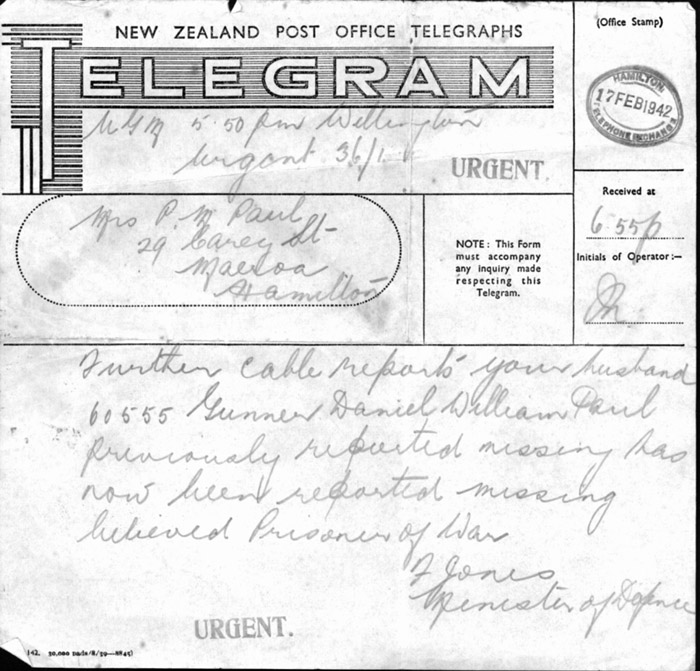 NEW ZEALAND POST OFFICE TELEGRAPHS
TELEGRAM
(Office Stamp)
HAMILTON
17 FEB 1942
TELEPHONE EXCHANGE
5.50 pm Wellington
Urgent 36/1
URGENT.
Received at
6 55p
Initials of Operator:—
Mrs P. M Paul
29 Carey St
Maeroa
Hamilton
NOTE: This Form
must accompany
any inquiry made
respecting this
Telegram.
Further cable reports your husband
60555 Gunner Daniel William Paul
previously reported missing has
now been reported missing
believed Prisoner of War
F Jones
Minister of Defence
URGENT.
142. 50,000 pads/8/39—8845)